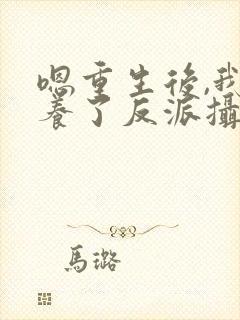 嗯重生後,我
養了反派攝
馬璐